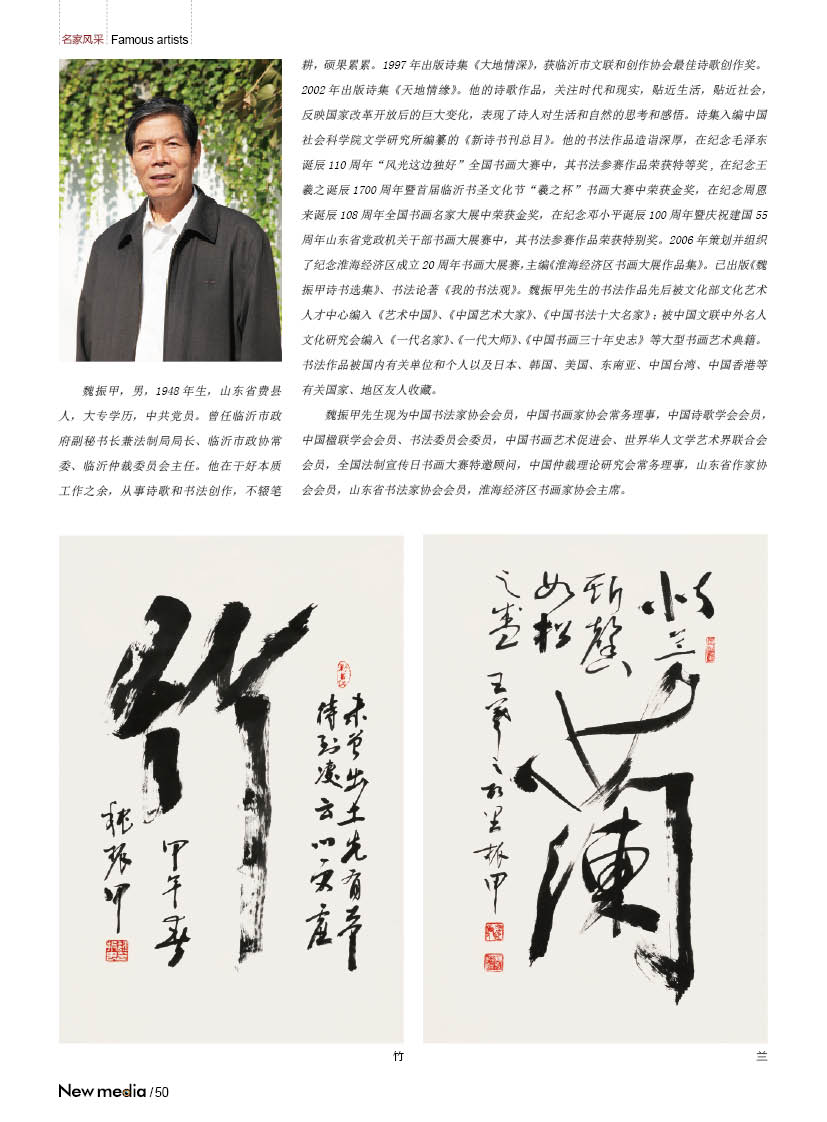 名家风采 Famous artists
魏振甲，男，1948 年生，山东省费县
人，大专学历，中共党员。曾任临沂市政
府副秘书长兼法制局局长、临沂市政协常
委、临沂仲裁委员会主任。他在干好本质
工作之余，从事诗歌和书法创作，不辍笔
耕，硕果累累。1997 年出版诗集《大地情深》，获临沂市文联和创作协会最佳诗歌创作奖。
2002 年出版诗集《天地情缘》。他的诗歌作品，关注时代和现实，贴近生活，贴近社会，
反映国家改革开放后的巨大变化，表现了诗人对生活和自然的思考和感悟。诗集入编中国
社会科学院文学研究所编纂的《新诗书刊总目》。他的书法作品造诣深厚，在纪念毛泽东
诞辰 110 周年“风光这边独好”全国书画大赛中，其书法参赛作品荣获特等奖 , 在纪念王
羲之诞辰 1700 年暨首届临沂书圣文化节“羲之杯”书画大赛中荣获金奖，在纪念周恩
来诞辰 108 周年全国书画名家大展中荣获金奖，在纪念邓小平诞辰 100 周年暨庆祝建国 55
周年山东省党政机关干部书画大展赛中，其书法参赛作品荣获特别奖。2006 年策划并组织
了纪念淮海经济区成立 20 周年书画大展赛，主编《淮海经济区书画大展作品集》。已出版《魏
振甲诗书选集》、书法论著《我的书法观》。魏振甲先生的书法作品先后被文化部文化艺术
人才中心编入《艺术中国》、《中国艺术大家》、《中国书法十大名家》；被中国文联中外名人
文化研究会编入《一代名家》、《一代大师》、《中国书画三十年史志》等大型书画艺术典籍。
书法作品被国内有关单位和个人以及日本、韩国、美国、东南亚、中国台湾、中国香港等
有关国家、地区友人收藏。
魏振甲先生现为中国书法家协会会员，中国书画家协会常务理事，中国诗歌学会会员，
中国楹联学会会员、书法委员会委员，中国书画艺术促进会、世界华人文学艺术界联合会
会员，全国法制宣传日书画大赛特邀顾问，中国仲裁理论研究会常务理事，山东省作家协
会会员，山东省书法家协会会员，淮海经济区书画家协会主席。
竹
未曾出土先有节
待到凌云心更虚
甲午春
魏振甲
似兰
斯馨
如松
之盛
王羲之故里振甲
蘭
竹
兰
New media /50